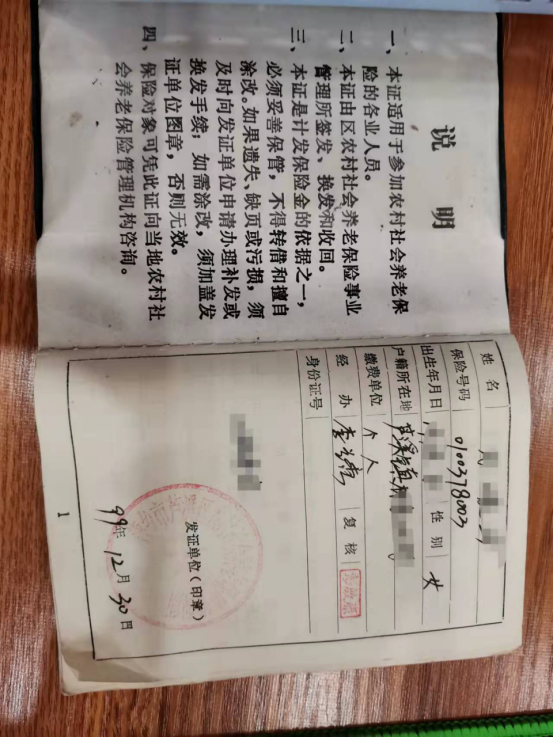 说明
一、本证适用于参加农村社会养老保
险的各业人员。
二、本证由区农村社会养老保险事业
管理所签发、换发和收回。
三、本证是计发保险金的依据之一，
必须妥善保管，不得转借和擅自
涂改。如果遗失、缺页或污损，须
及时向发证单位申请办理补发或
换发手续；如需涂改，须加盖发
证单位图章，否则无效。
四、保险对象可凭此证向当地农村社
会养老保险管理机构咨询。
姓名
保险号码 0100378003
出生年月日 性别 女
户籍所在地
缴费单位 个人
经办 复核
身份证号
发证单位（印章）
99年12月30日
1